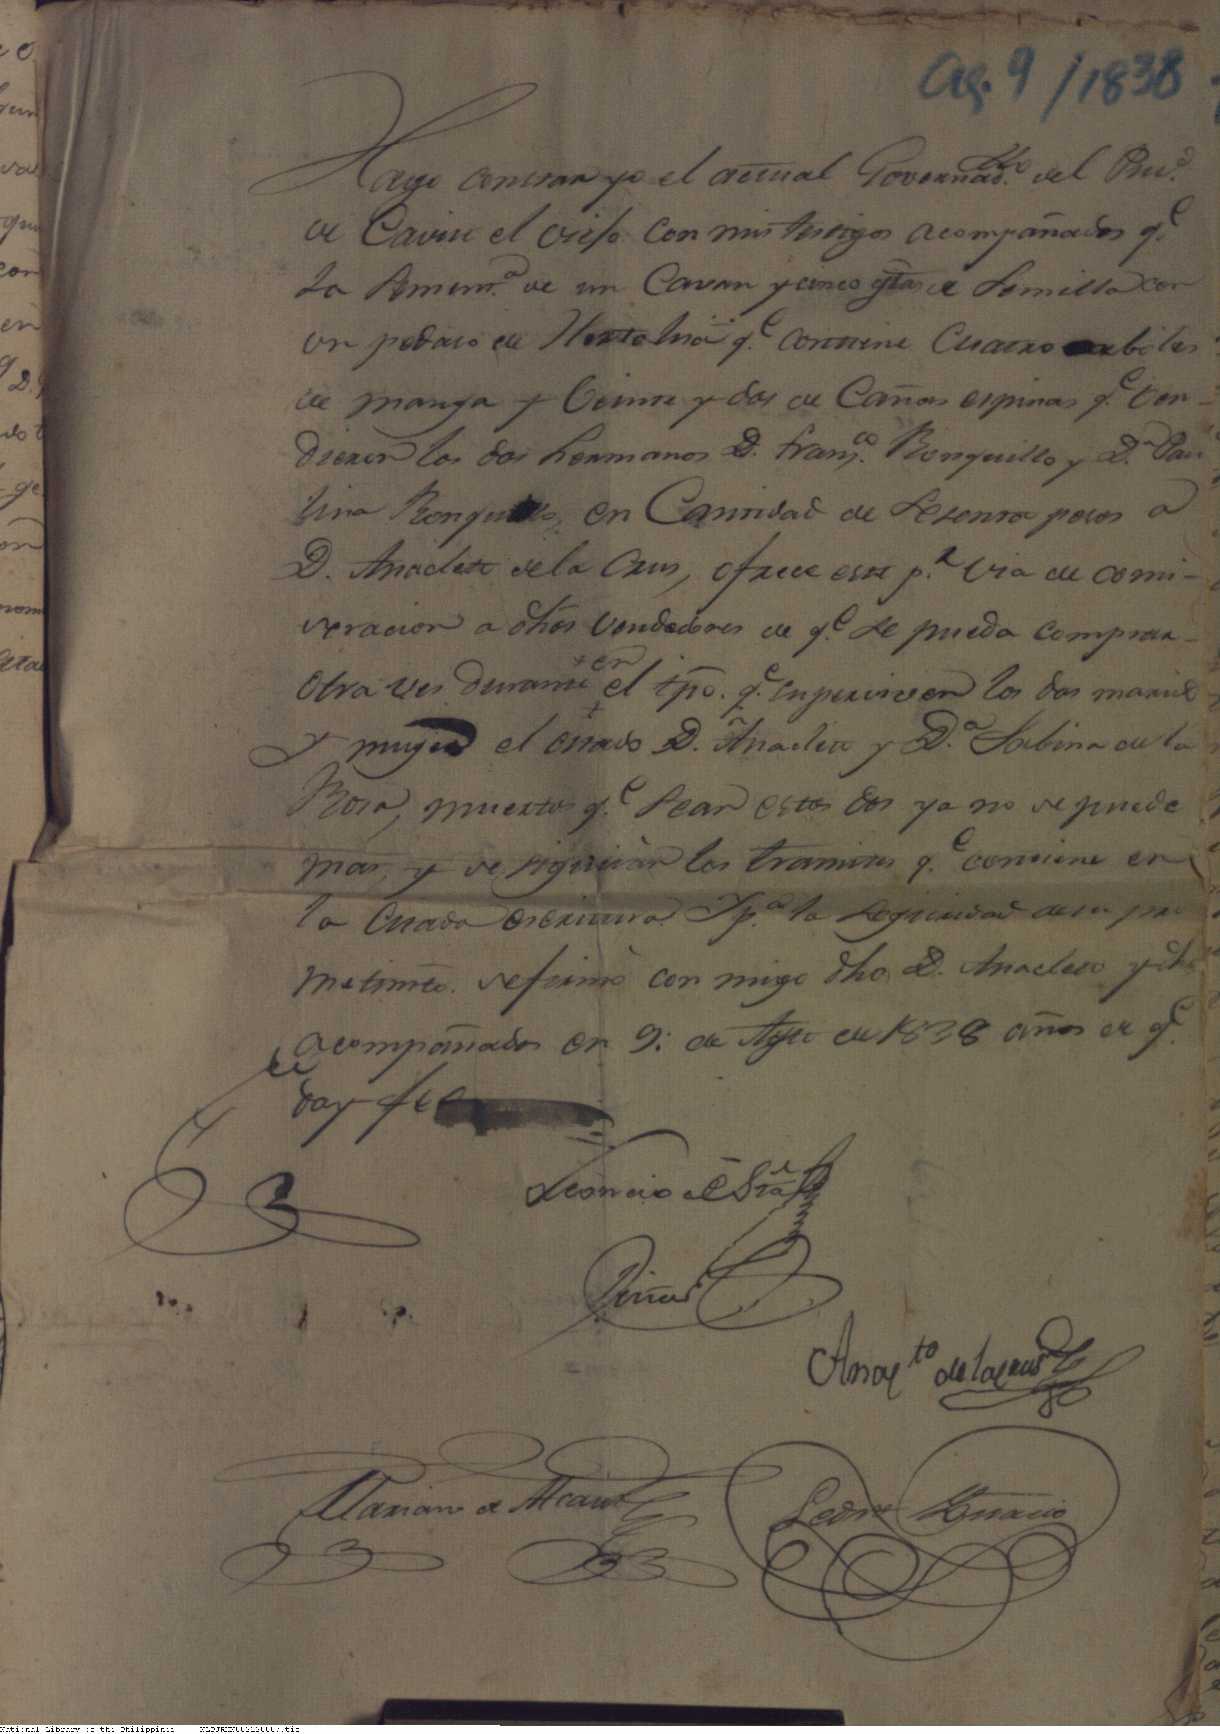 Ag. 9 / 1838
Hago constar yo el actual Governad.cllo del Pu.º
de Cavite el viejo con mis testigos acompañados q.e
la Simen.a de un Cavan y cinco gtas de Semilla con
un pedaso de Hortaliza q.e contiene Cuatro arboles
de manga y Veinte y dos de Cañas espinas q.e Ven-
dieron los dos hermanos D. Fran.co Ronquillo y D.a Pau
lina Ronquillo, en Cantidad de Sesenta pesos a
D. Anacleto de la Crus, ofrece este p.r via de comi-
seracion a dhos Vendedores de q.e se pueda comprar
otra ves durante en el tpo. q.e superviven los dos marid
y muger el citado D.n Anacleto y D.a Sabina de la
Rosa, muertos q.e sean estos dos ya no se puede
mas, y se siguiran los tramites q.e contiene en
la citada escritura. Y p.a la seguridad de su pro
metimto. se firmó con migo dho D. Anacleto y dhos
acompañados en 9: de Agto de 1838 años de q.e
doy fee
Leoncio de
Anac.to de la crus
Mariano de Alcant
Pedro Ignacio
National Library of the Philippines